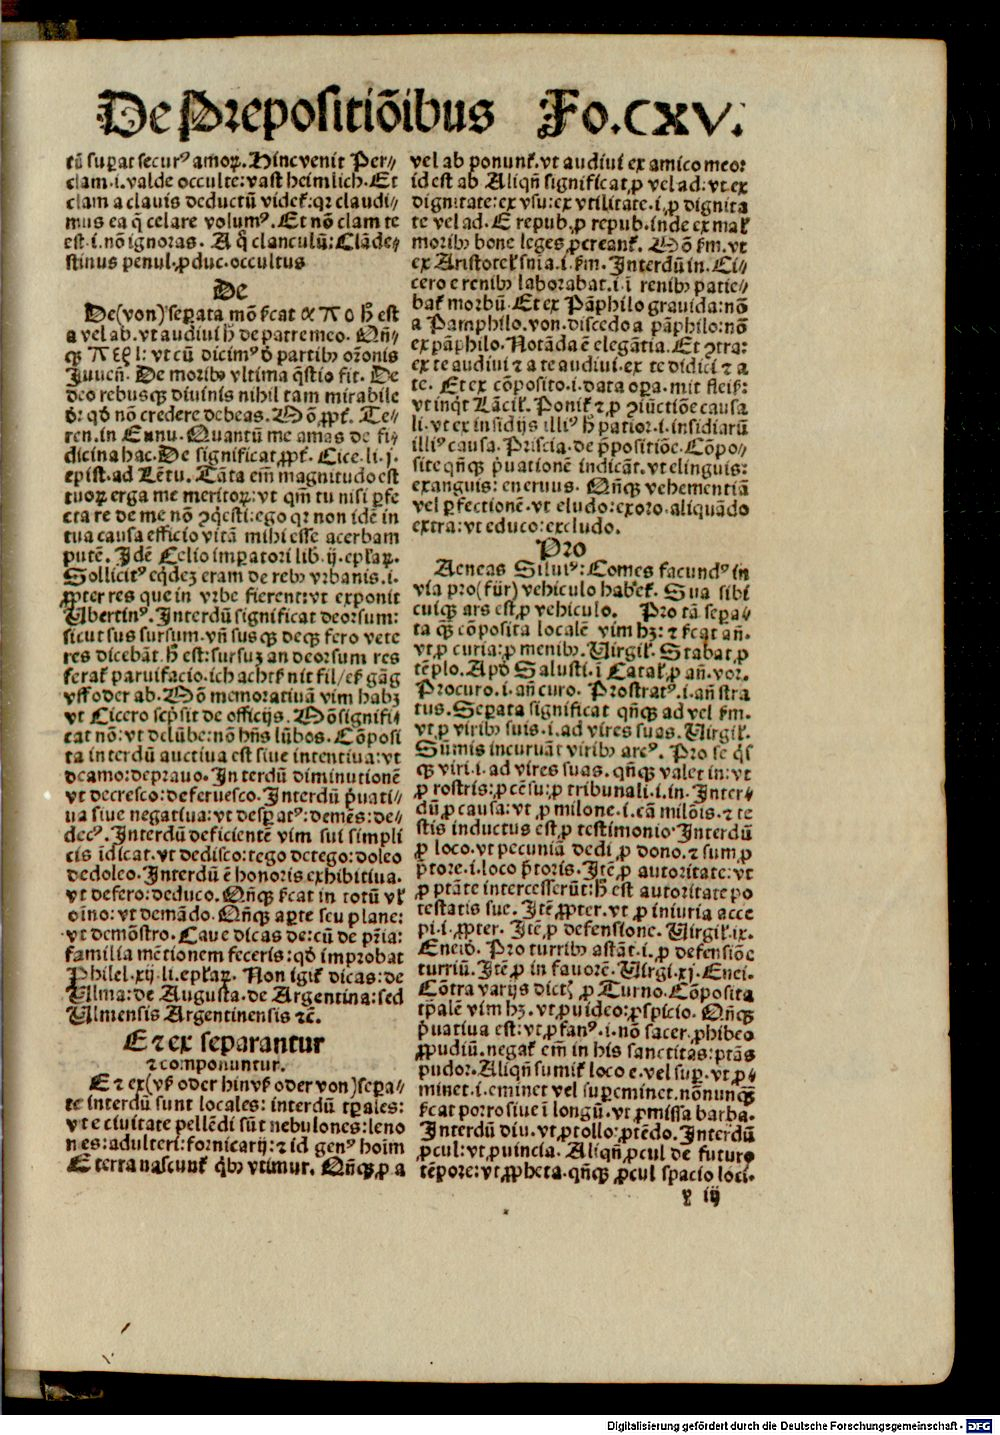 De Prepositiõibus Fo.CXV.
tũ suꝑat secur⁹ amoꝝ. Hinc venit Per⸗
clam .i. valde occulte: vast heimlich. Et
clam a clauis deductũ videt᷒: qꝛ claudi⸗
mus ea q̃ celare volum⁹. Et nõ clam te
est .i. nõ ignoras. A q̃ clanculũ: Clãde⸗
stinus penul. ꝓduc. occultus
De
De (von) seꝑata mõ
a vel ab. vt audiui h̃ de patre meo. Qñ⸗
qꝫ πεςι: vt cũ dicim⁹ ð partibꝰ oꝛõnis
Juueñ. De moribꝰ vltima q̃stio fit. De
deo rebusqꝫ diuinis nihil tam mirabile
qð nõ credere debeas. Te⸗
ren. in Eunu. Quantũ me amas de fi⸗
dicina hac. De significat ꝓpt᷒. Cice. li. j.
epist. ad Lẽtu. Tãta em̃ magnitudo est
tuoꝝ erga me meritoꝝ: vt qm̃ tu nisi ꝑfe
cta re de me nõ ꝯq̃esti: ego qꝛ non idẽ in
tua causa efficio vitã mihi esse acerbam
putẽ. Jdẽ Celio imꝑatori lib. ij. ep̃laꝝ.
Sollicit⁹ eq̃dez eram de rebꝰ vrbanis .i.
ꝓpter res que in vrbe fierent: vt exponit
Vbertin⁹. Jnterdũ significat deorsum:
sicut sus sursum. vñ susqꝫ deqꝫ fero vete
res dicebãt. h̃ est: sursuz an deorsum res
ferat᷒ paruifacio. ich acht᷒ nit
vff oder ab. Mõ memoratiuã vim habꝫ
vt Cicero sc̃psit de officijs. Mõ signifi⸗
cat nõ: vt delũbe: nõ hñs lũbos. Cõposi
ta interdũ auctiua est siue intentiua: vt
deamo: deprauo. Jnterdũ diminutionẽ
vt decresco: deferuesco. Jnterdũ p̃uati⸗
ua siue negatiua: vt desꝑat⁹: demẽs: de⸗
dec⁹. Jnterdũ deficientẽ vim sui simpli
cis ĩdicat. vt dedisco: tego detego: doleo
dedoleo. Jnterdũ ẽ honoris exhibitiua.
vt defero: deduco. Qñqꝫ in totũ
oĩno: vt demãdo. Qñqꝫ aꝑte seu plane:
vt demõstro. Caue dicas de: cũ de p̃ria:
familia mẽtionem feceris: qð improbat
Philel. xij. li. ep̃laꝝ. Non igit᷒ dicas: de
Vlma: de Augusta. de Argentina: sed
Vlmensis Argentinensis ꝛc̃.
E ꞇ ex separantur
ꞇ componuntur.
E ꞇ ex (vß oder hinvß oder von) seꝑa⸗
te interdũ sunt locales: interdũ tꝑales:
vt e ciuitate pellẽdi sũt nebulones: leno
nes: adulteri: fornicarij: ꞇ id gen⁹ hoĩm
E terra nascunt᷒ qͥbꝰ vtimur. Qñqꝫ ꝓ a
vel ab ponunt᷒. vt audiui ex amico meo:
id est ab Aliqñ significat ꝓ vel ad: vt ex
dignitate: ex vsu: ex vtilitate .i. ꝓ dignita
te vel ad. E repub. ꝓ repub. inde ex
moribꝰ bone leges ꝓcreant᷒. Mõ vt
ex Aristotel᷒ snĩa .i. Jnterdũ in. Ci⸗
cero e renibꝰ laborabat .i. ĩ renibꝰ patie⸗
bat᷒ morbũ. Et ex Pãphilo grauida: nõ
a Pamphilo. von. discedo a pãphilo: nõ
ex pãphilo. Notãda ẽ elegãtia. Et ꝯtra:
ex te audiui ꞇ a te audiui. ex te didici ꞇ a
te. Et ex cõposito .i. data oꝑa. mit fleiß:
vt inq̃t Lãcil᷒. Ponit᷒ ꞇ ꝓ ꝯiũctiõe causa
li. vt ex insidijs illi⁹ h̃ patior .i. insidiarũ
illi⁹ causa. Priscia. de p̃positiõe. Cõpo⸗
site qñqꝫ p̃uationẽ indicãt. vt elinguis:
exanguis: eneruus. Qñqꝫ vehementiã
vel ꝑfectionẽ. vt eludo: exoro. aliquãdo
extra: vt educo: excludo.
Pro
Aeneas Siluĩ⁹: Comes facund⁹ in
via pro (für) vehiculo habet᷒. Sua sibi
cuiqꝫ ars est ꝓ vehiculo. Pro tã seꝑa⸗
ta qꝫ cõposita localẽ vim hꝫ: ꞇ añ.
vt ꝓ curia: ꝓ menibꝰ. Virgil᷒. Stabat ꝓ
tẽplo. Apð Salusti. ĩ Catal᷒. ꝓ añ. vor.
Procuro .i. añ curo. Prostrat⁹ .i. añ stra
tus. Seꝑata significat qñqꝫ ad vel
vt ꝓ viribꝰ suis .i. ad vires suas. Virgil᷒.
Sumis incuruãt viribꝰ arc⁹. Pro se q̃s
qꝫ viri .i. ad vires suas. qñqꝫ valet in: vt
ꝓ rostris: ꝓ cẽsu: ꝓ tribunali .i. in. Jnter⸗
dũ ꝓ causa: vt ꝓ milone .i. cã milõis. ꞇ te
stis inductus est ꝓ testimonio. Jnterdũ
ꝓ loco. vt pecuniã dedi ꝓ dono. ꞇ sum ꝓ
p̃tore .i. loco p̃toris. Jtẽ ꝓ autoritate: vt
ꝓ ptãte intercesserũt: h̃ est autoritate po
testatis sue. Jtẽ ꝓpter. vt ꝓ iniuria acce
pi .i. ꝓpter. Jtẽ ꝓ defensione. Virgil᷒. ix.
Eneið. Pro turribꝰ astãt .i. ꝓ defensiõe
turriũ. Jtẽ ꝓ in fauorẽ. Virgi. xj. Enei.
Cõtra varijs ꝓ Turno. Cõposita
tꝑalẽ vim hꝫ. vt ꝓuideo: ꝓspicio. Qñqꝫ
p̃uatiua est: vt ꝓfan⁹ .i. nõ sacer. ꝓhibeo
ꝓpudiũ. negat᷒ em̃ in his sanctitas: ptãs
pudor. Aliqñ sumit᷒ loco e. vel suꝑ. vt ꝓ⸗
minet .i. eminet vel suꝑeminet. nõnunqꝫ
porro siue ĩ longũ. vt ꝓmissa barba.
Jnterdũ diu. vt ꝓtollo: ꝓtẽdo. Jnterdũ
ꝓcul: vt ꝓuincia. Aliqñ ꝓcul de futuro
tẽpore: vt ꝓpheta. qñqꝫ ꝓcul spacio loci.
y iij
Digitalisierung gefördert durch die Deutsche Forschungsgemeinschaft - DFG